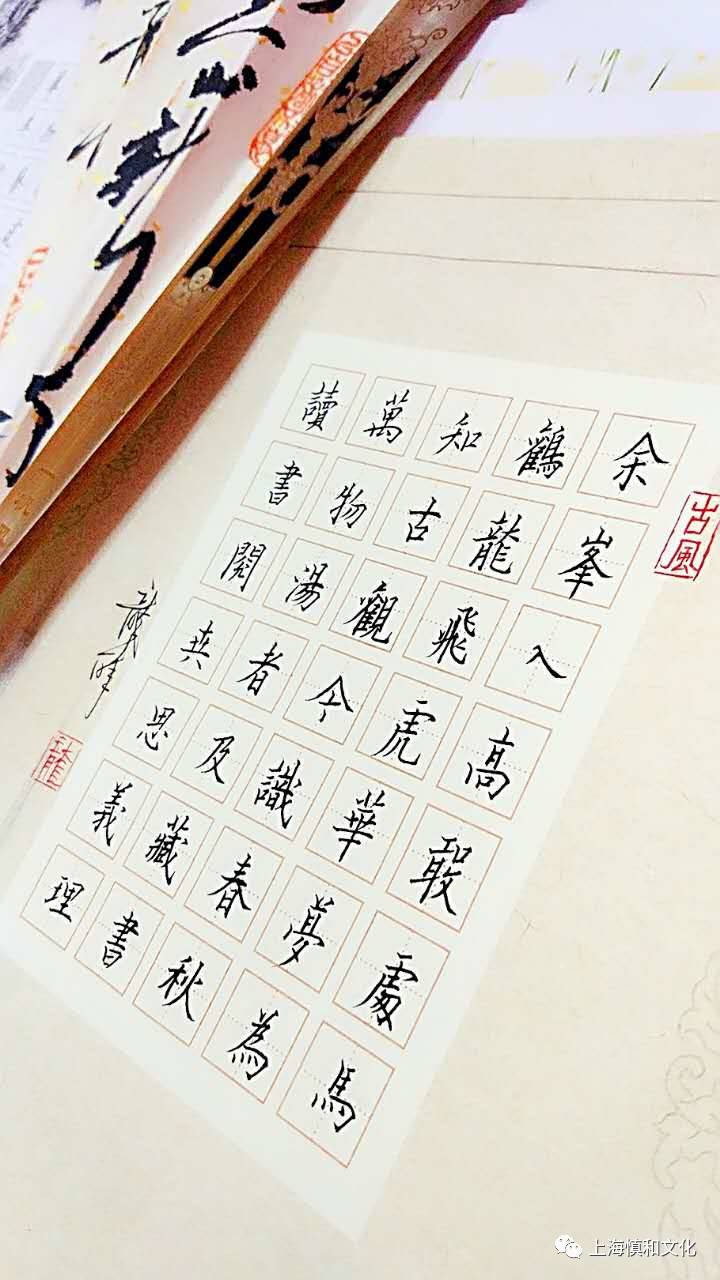 古風
余峯入高敢處馬
鶴龍飛虎華夢為
知古觀今識春秋
萬物湯者及藏書
讀書閱卋思義理
龍
上海慎和文化